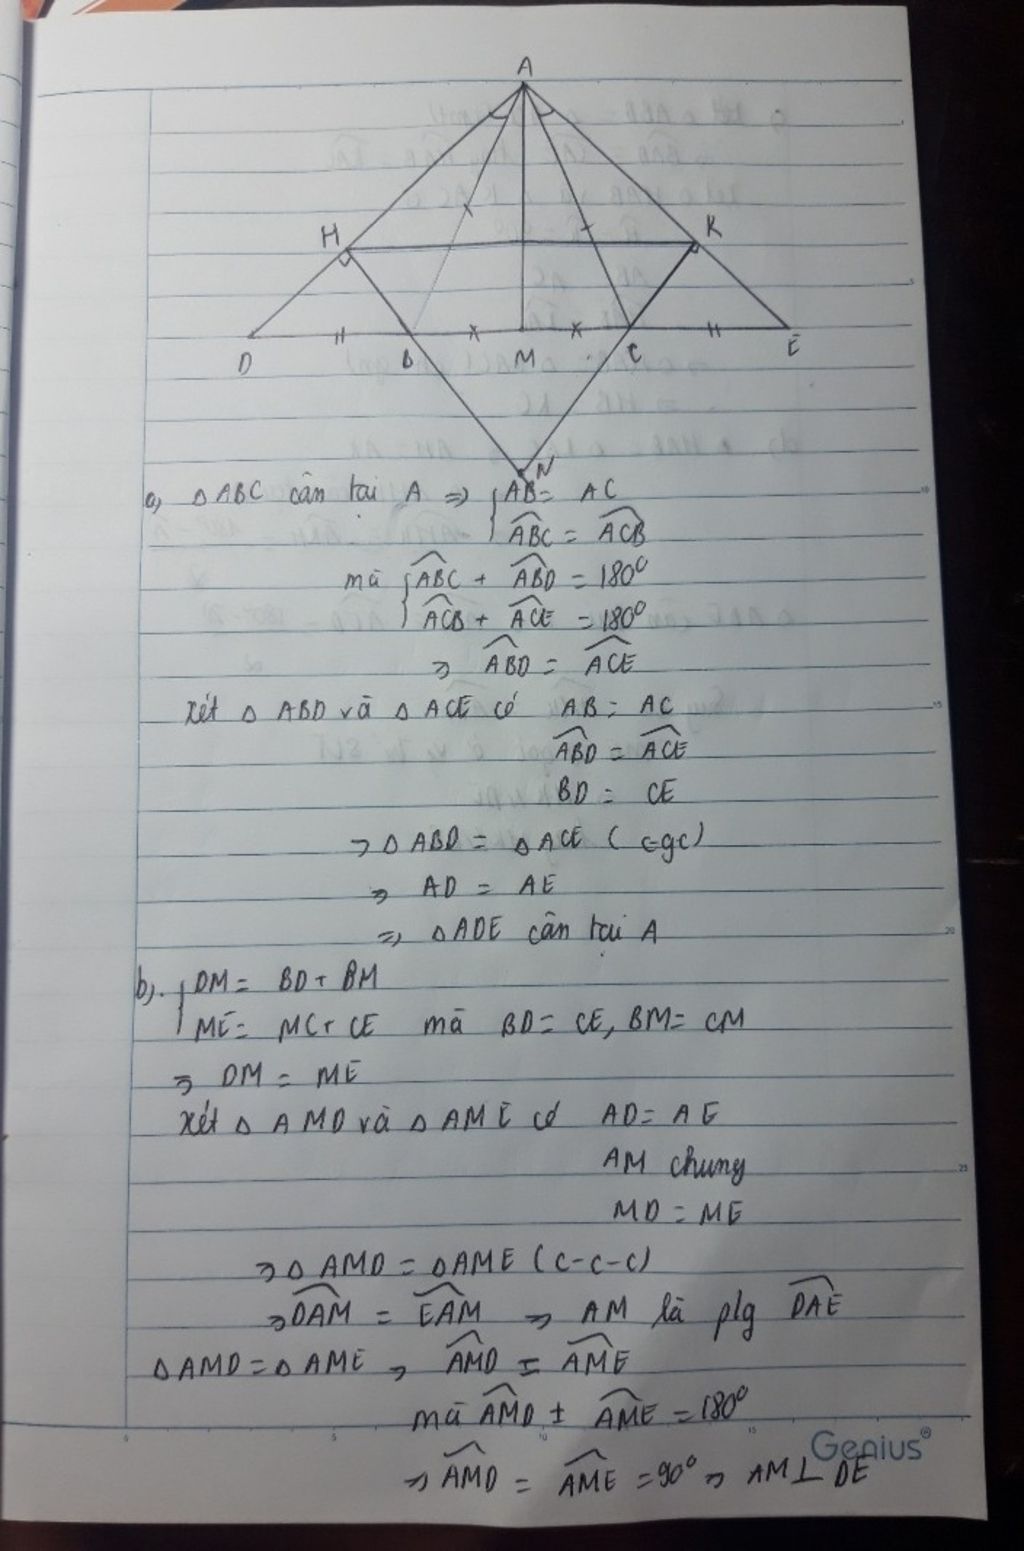 A
H
K
D
B
M
C
E
N
a, △ABC cân tại A => { AB = AC
\widehat{ABC} = \widehat{ACB}
mà { \widehat{ABC} + \widehat{ABD} = 180⁰
\widehat{ACB} + \widehat{ACE} = 180⁰
=> \widehat{ABD} = \widehat{ACE}
Xét △ ABD và △ ACE có AB = AC
\widehat{ABD} = \widehat{ACE}
BD = CE
=> △ ABD = △ ACE ( cgc)
=> AD = AE
=> △ADE cân tại A
b, { DM = BD + BM
ME = MC + CE mà BD = CE, BM = CM
=> DM = ME
Xét △ AMD và △ AME có AD = AE
AM chung
MD = ME
=> △ AMD = △AME (c-c-c)
=> \widehat{DAM} = \widehat{EAM} => AM là plg \widehat{DAE}
△AMD = △ AME => \widehat{AMD} = \widehat{AME}
mà \widehat{AMD} + \widehat{AME} = 180⁰
Genius®
=> \widehat{AMD} = \widehat{AME} = 90⁰ => AM ⊥ DE